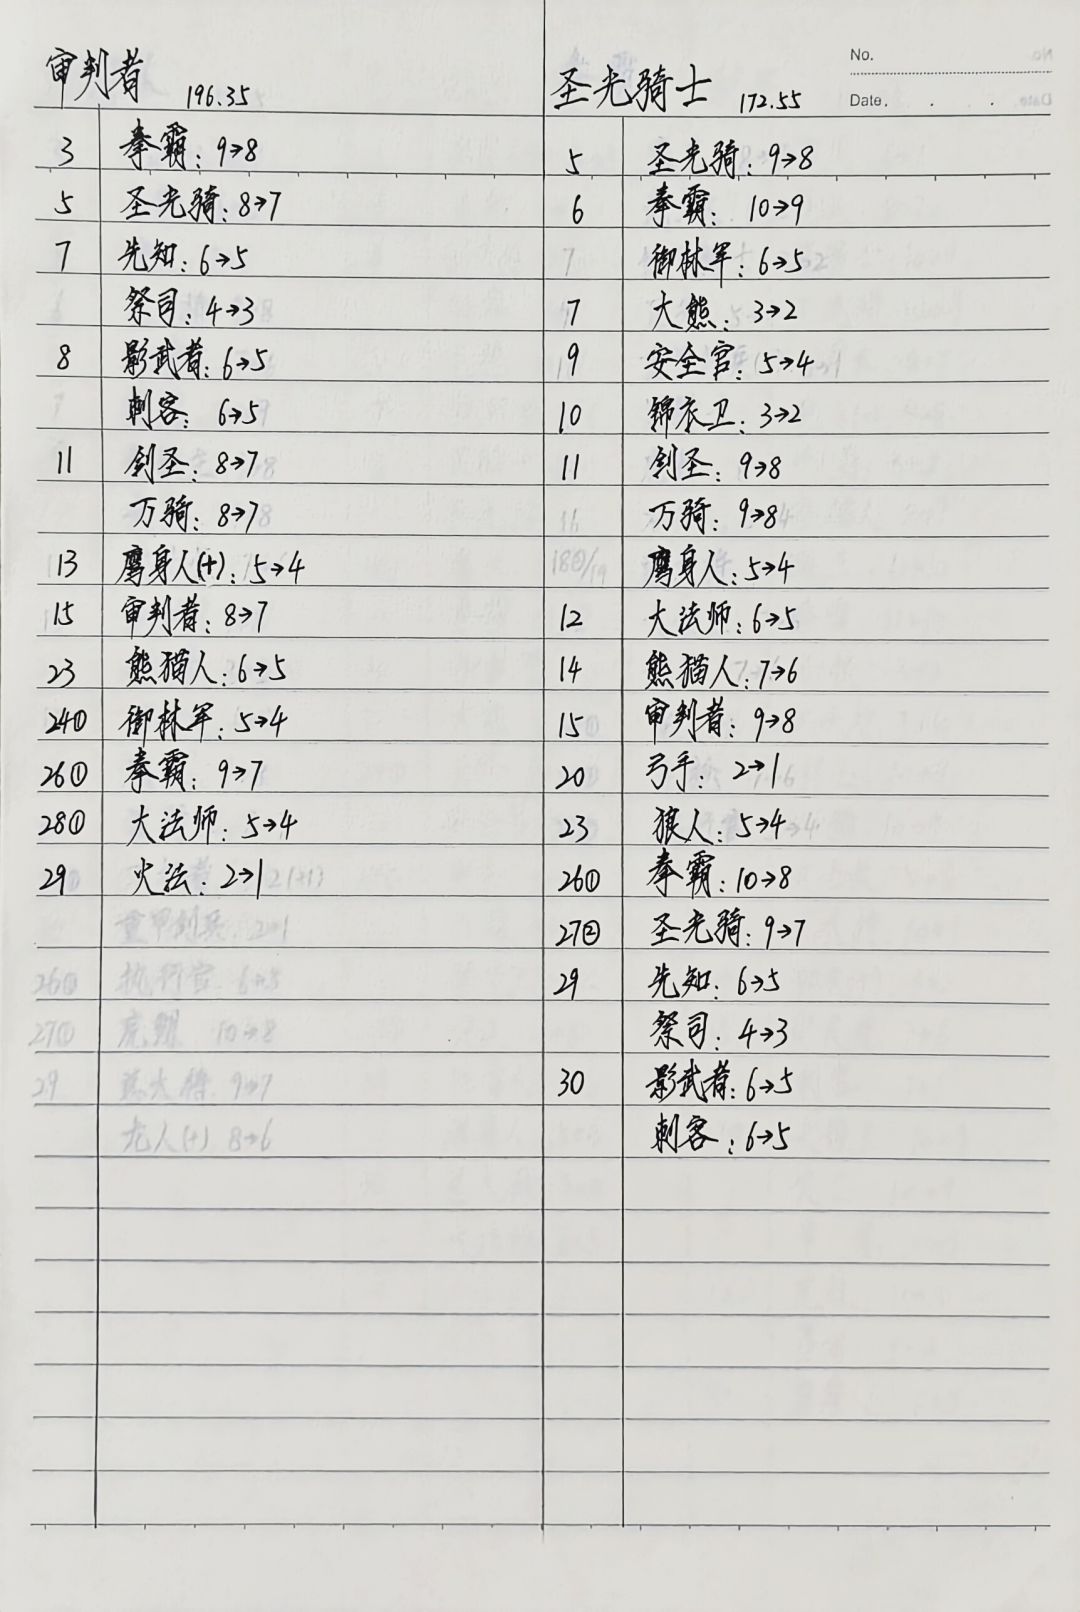 审判者 196.35
3 拳霸：9→8
5 圣光骑：8→7
7 先知：6→5
祭司：4→3
8 影武者：6→5
刺客：6→5
11 剑圣：8→7
万骑：8→7
13 鹰身人(+)：5→4
15 审判者：8→7
23 熊猫人：6→5
24① 御林军：5→4
26① 拳霸：9→7
28① 大法师：5→4
29 火法：2→1
No.
Date. . . .
圣光骑士 172.55
5 圣光骑：9→8
6 拳霸：10→9
御林军：6→5
7 大熊：3→2
9 安全官：5→4
10 锦衣卫：3→2
11 剑圣：9→8
万骑：9→8
鹰身人：5→4
12 大法师：6→5
14 熊猫人：7→6
15 审判者：9→8
20 弓手：2→1
23 狼人：5→4
26① 拳霸：10→8
27② 圣光骑：9→7
29 先知：6→5
祭司：4→3
30 影武者：6→5
刺客：6→5